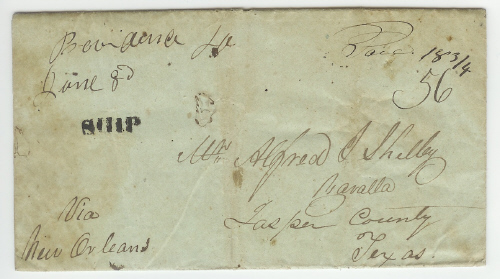 Providence La
June 8d
Paid 18 3/4
56
SHIP
Mrs Alfred J Shelby
Zavalla
Jasper County
Texas.
Via
New Orleans